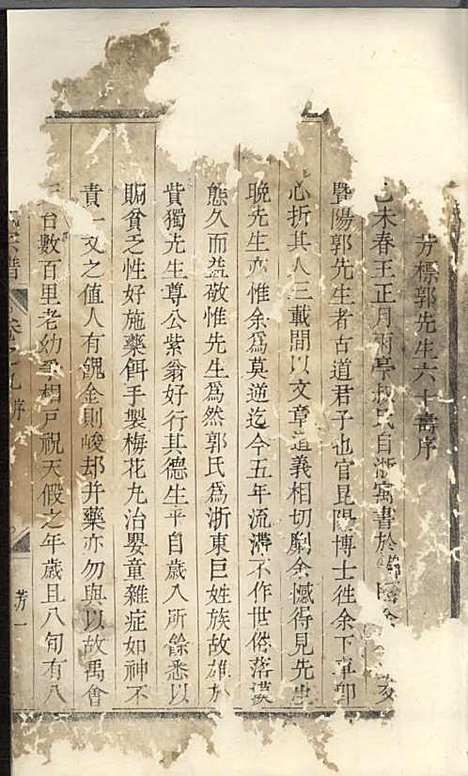 芳標郭先生六十壽序
己未春王正月雨亭叔氏自浙寓書於
暨陽郭先生者古道君子也官昆陽博士徃余下車卽
心折其人三載間以文章道義相切劘余憾得見先生
晩先生亦惟余爲莫逆迄今五年流滯不作世俗落漠
態久而益敬惟先生爲然郭氏爲浙東巨姓族故雄於
貲獨先生尊公紫翁好行其德生平自歲入所餘悉以
賙貧乏性好施藥餌手製梅花丸治嬰童雜症如神不
責一文之值人有餽金則峻却幷藥亦勿與以故禹會
台數百里老幼爭相尸祝天假之年歲且八旬有八
芳一